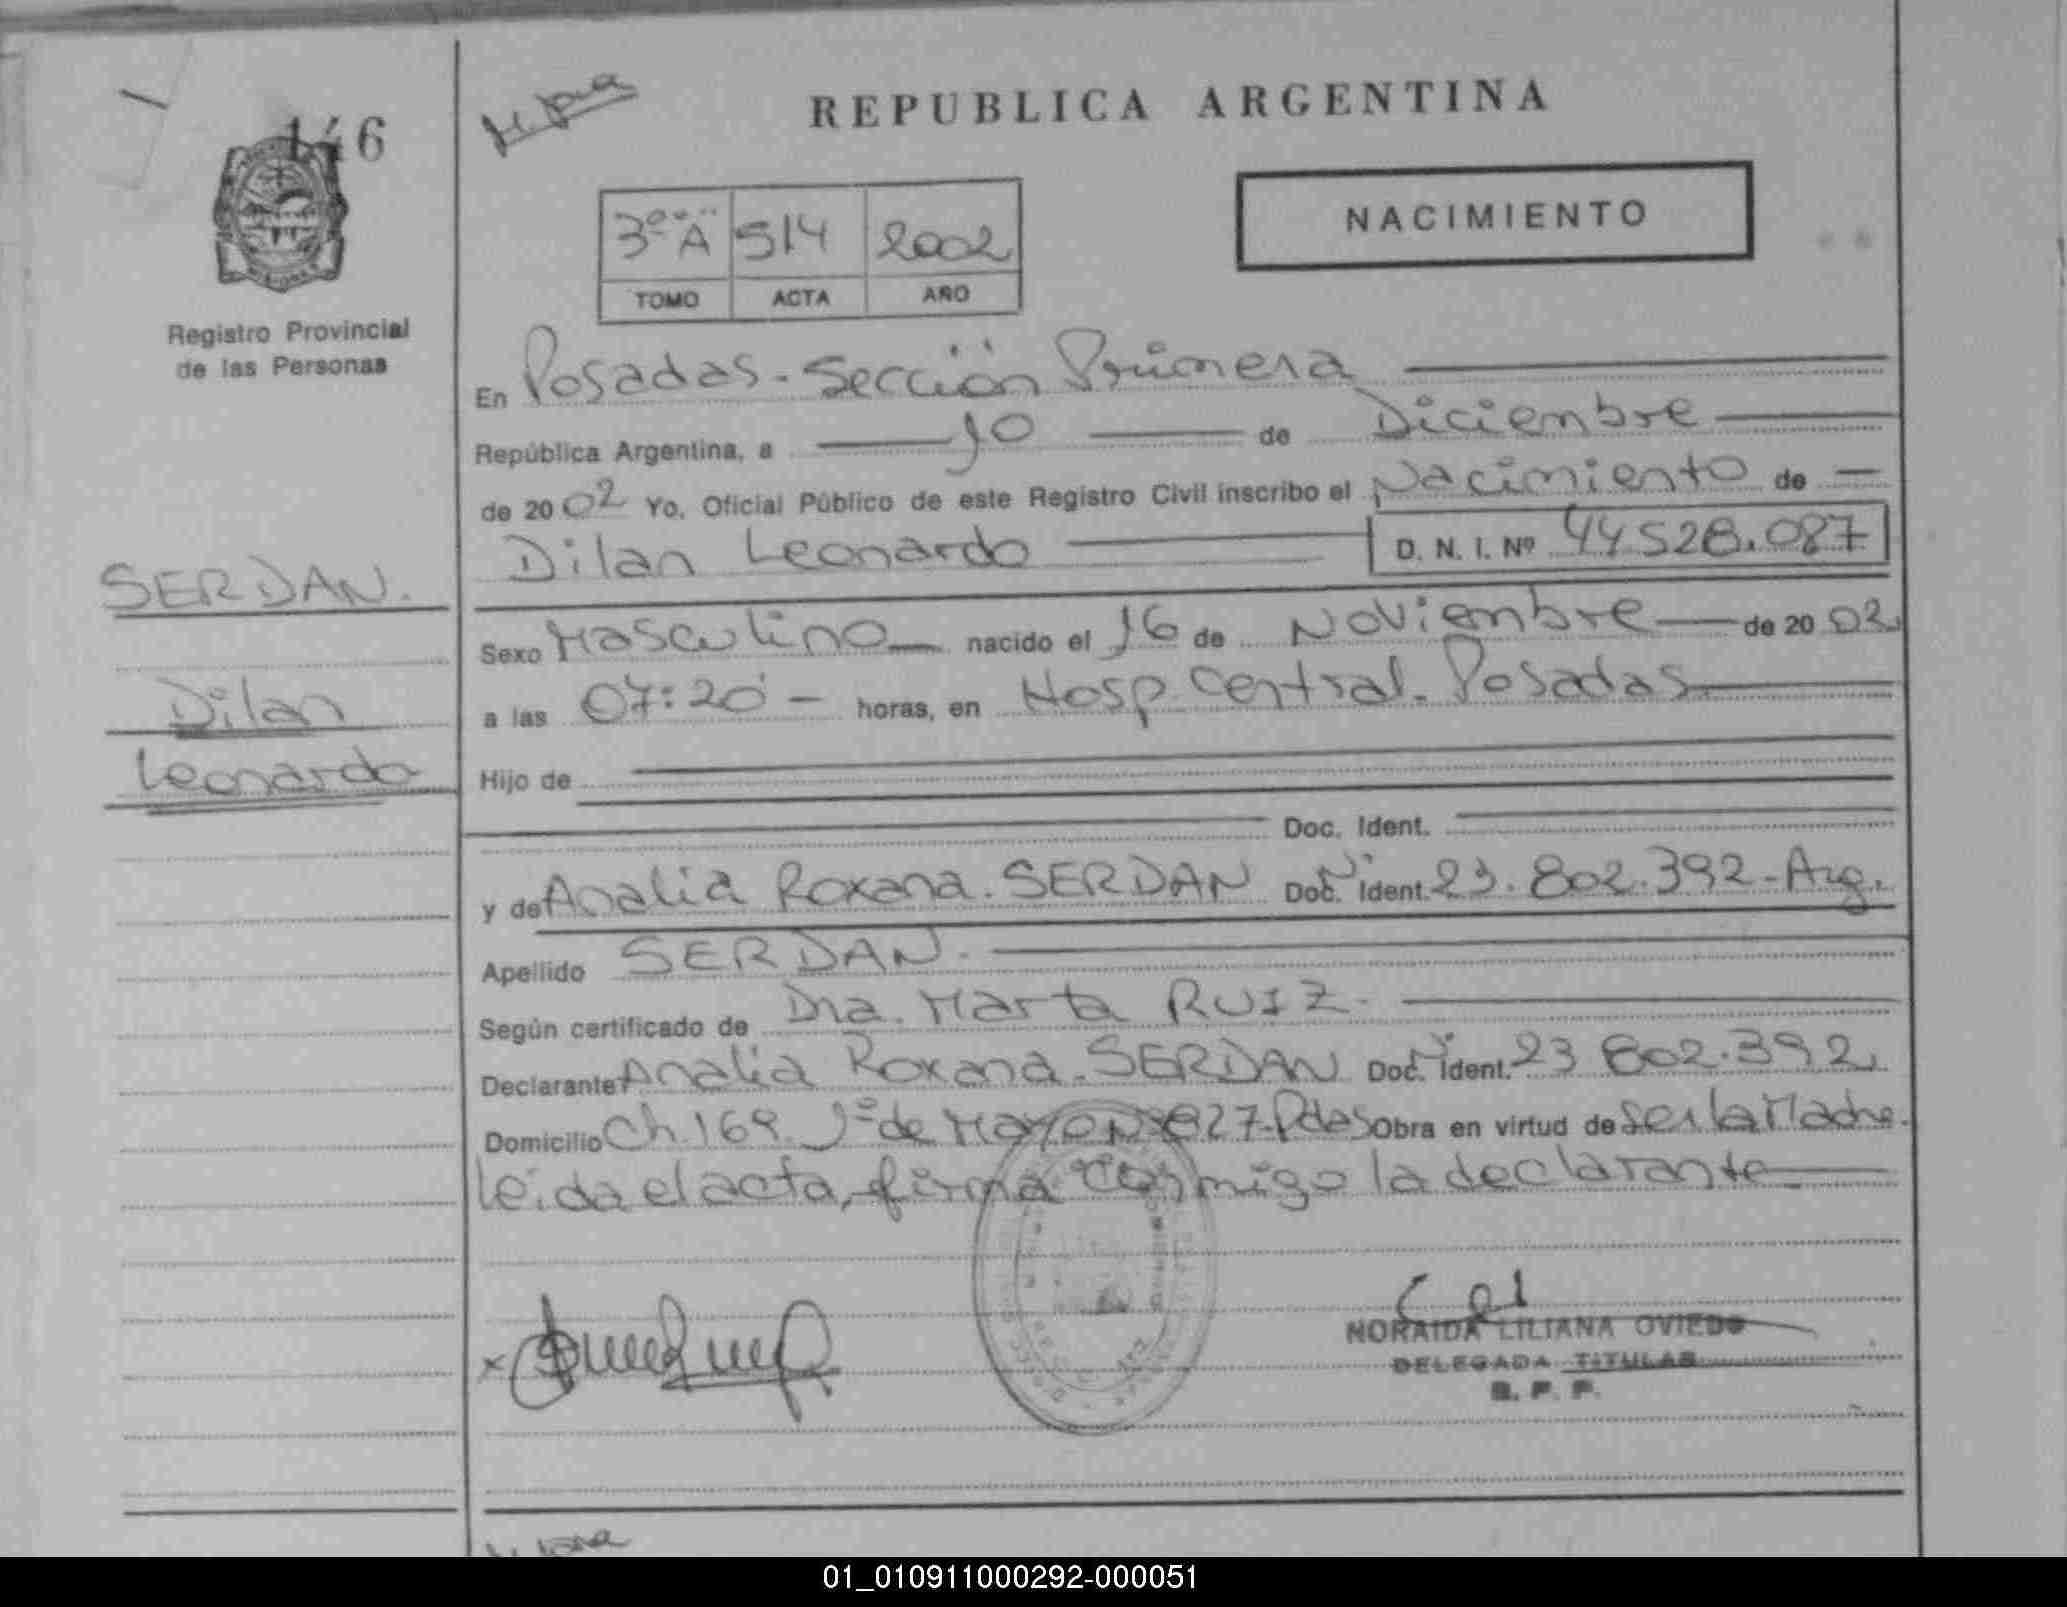 146
REPUBLICA ARGENTINA
NACIMIENTO
3º "A" 514 2002
TOMO ACTA AÑO
Registro Provincial
de las Personas
En Posadas - Sección Primera
República Argentina, a 10 de Diciembre
de 2002 Yo, Oficial Público de este Registro Civil inscribo el Nacimiento de
Dilan Leonardo D. N. I. Nº 44528.087
SERDAN.
Dilan
Leonardo
Sexo Masculino nacido el 16 de Noviembre de 2002
a las 07:20 - horas, en Hosp. Central. Posadas
Hijo de
Doc. Ident.
y de Analia Roxana. SERDAN Doc. Ident. 23.802.392-Arg.
Apellido SERDAN.
Según certificado de Dra. Marta RUIZ.
Declarante Analia Roxana. SERDAN Doc. Ident. 23 802.392.
Domicilio Ch. 169. 1º de Mayo Nº 827-Pdas Obra en virtud de ser la Madre.
Leida el acta, firma conmigo la declarante.
x
NORAIDA LILIANA OVIEDO
DELEGADA TITULAR
R. P. P.
01_010911000292-000051